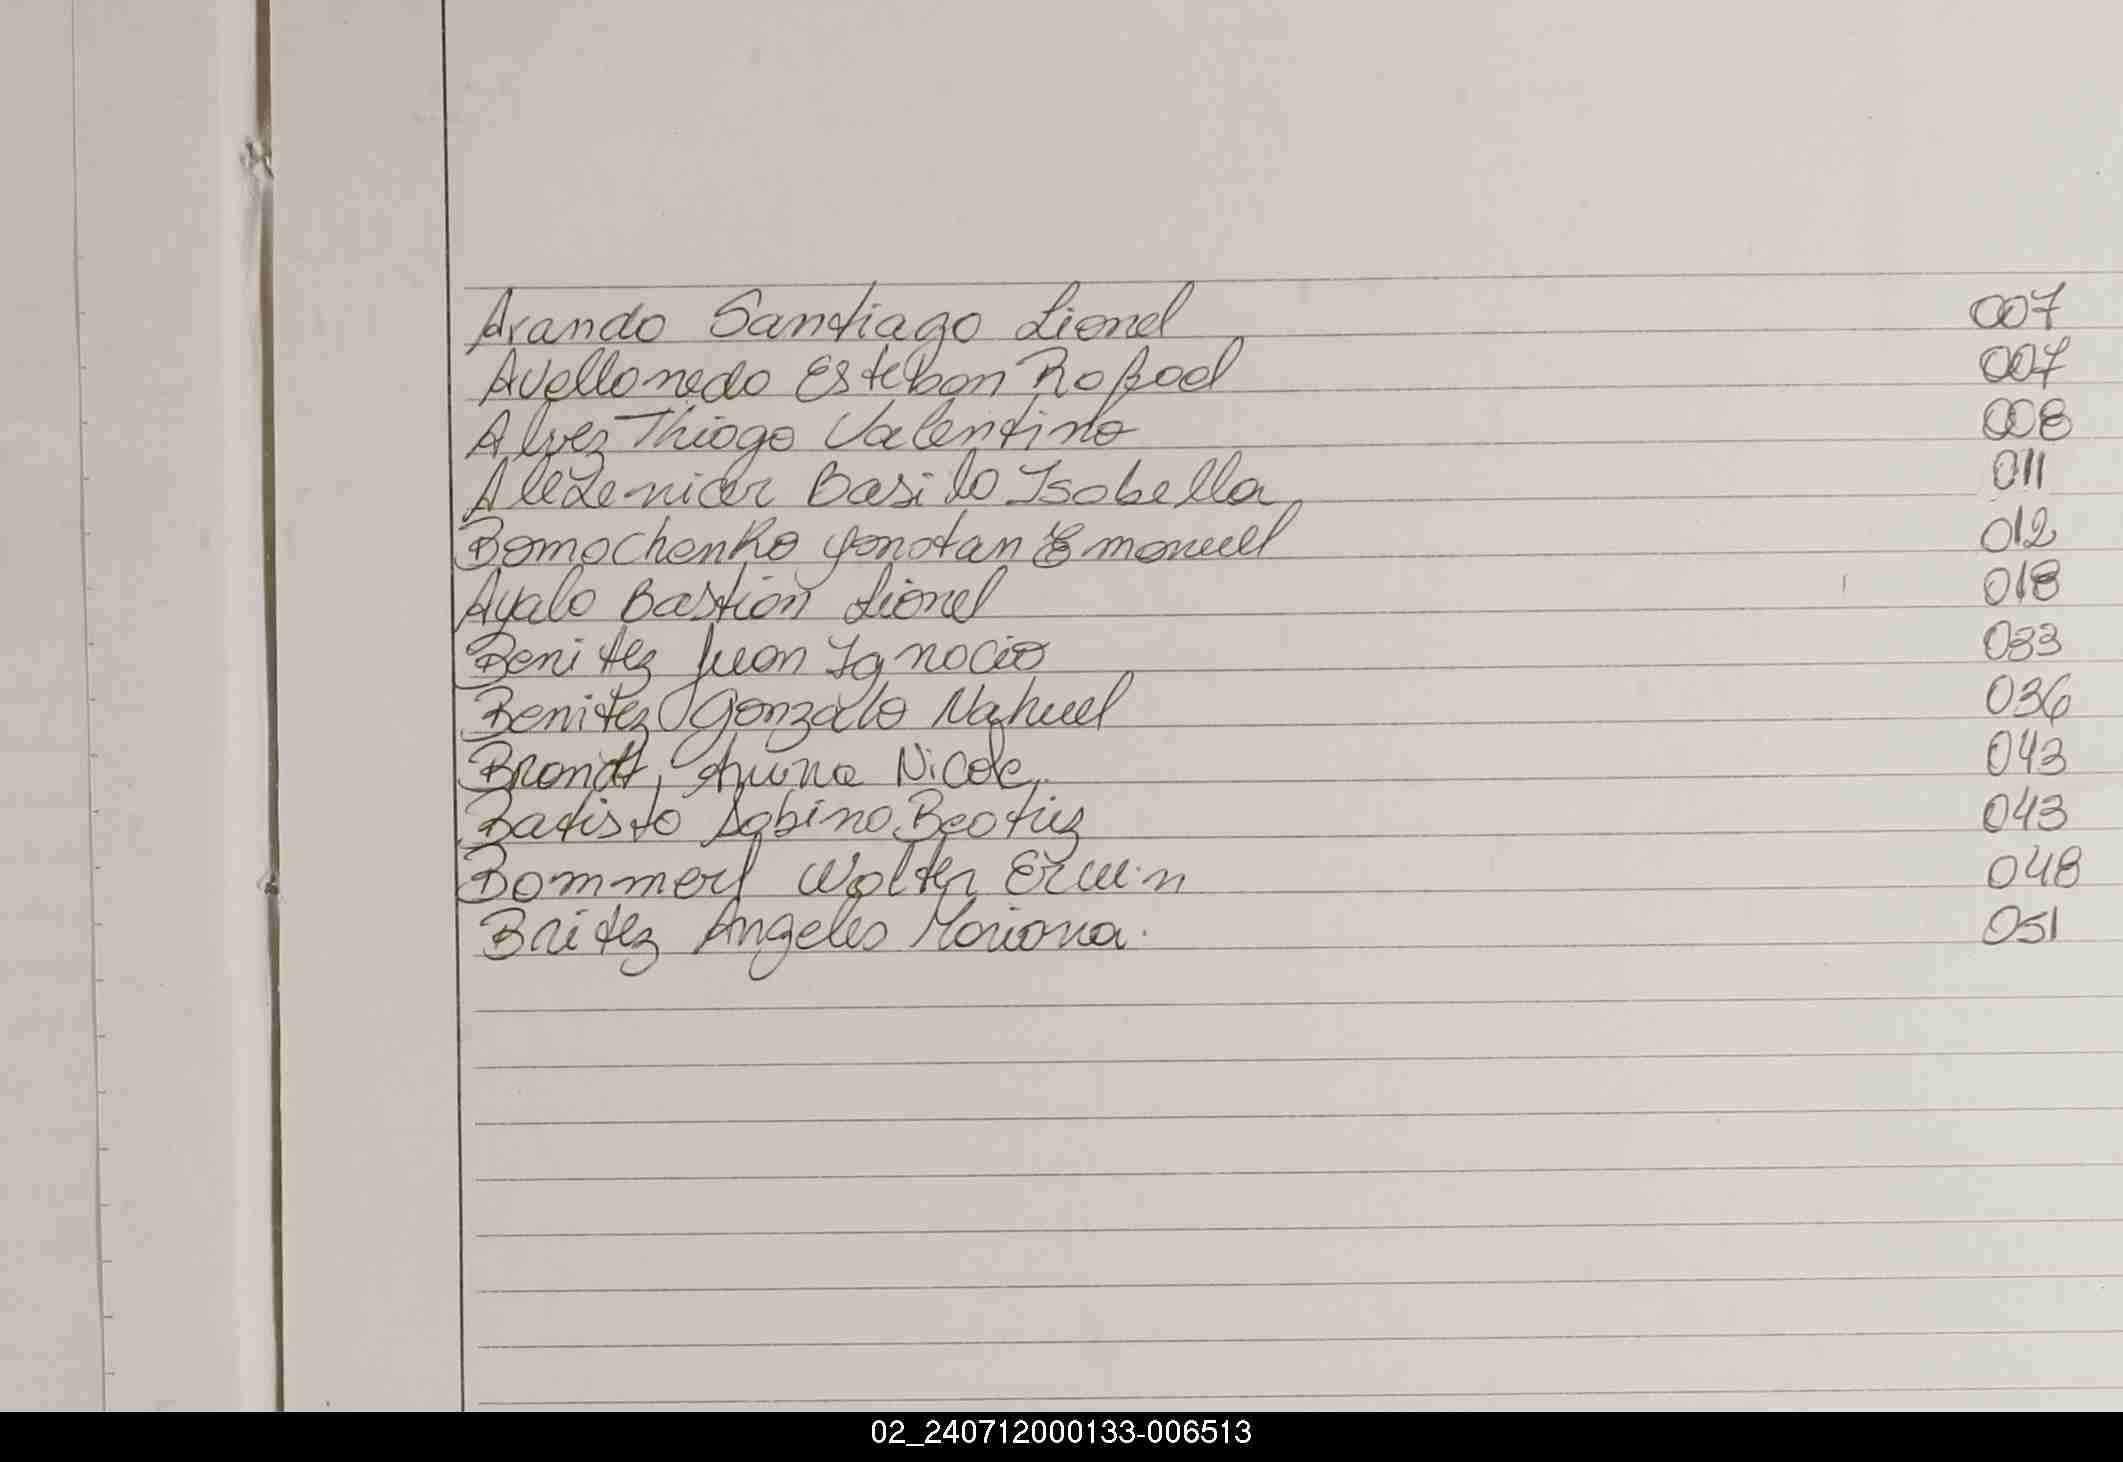 Arando Santiago Lionel 007
Avellaneda Esteban Rafael 007
Alvez Thiago Valentino 008
Basilo Isabella 011
Bomachenko Yonatan Emanuel 012
Ayala Bastian Lionel 018
Benitez Juan Ignacio 033
Benitez Gonzalo Nahuel 036
Brandt, Nicole 043
Batista Sabina Beatriz 043
Walter Erwin 048
Britez Angeles Mariana. 051
02_240712000133-006513